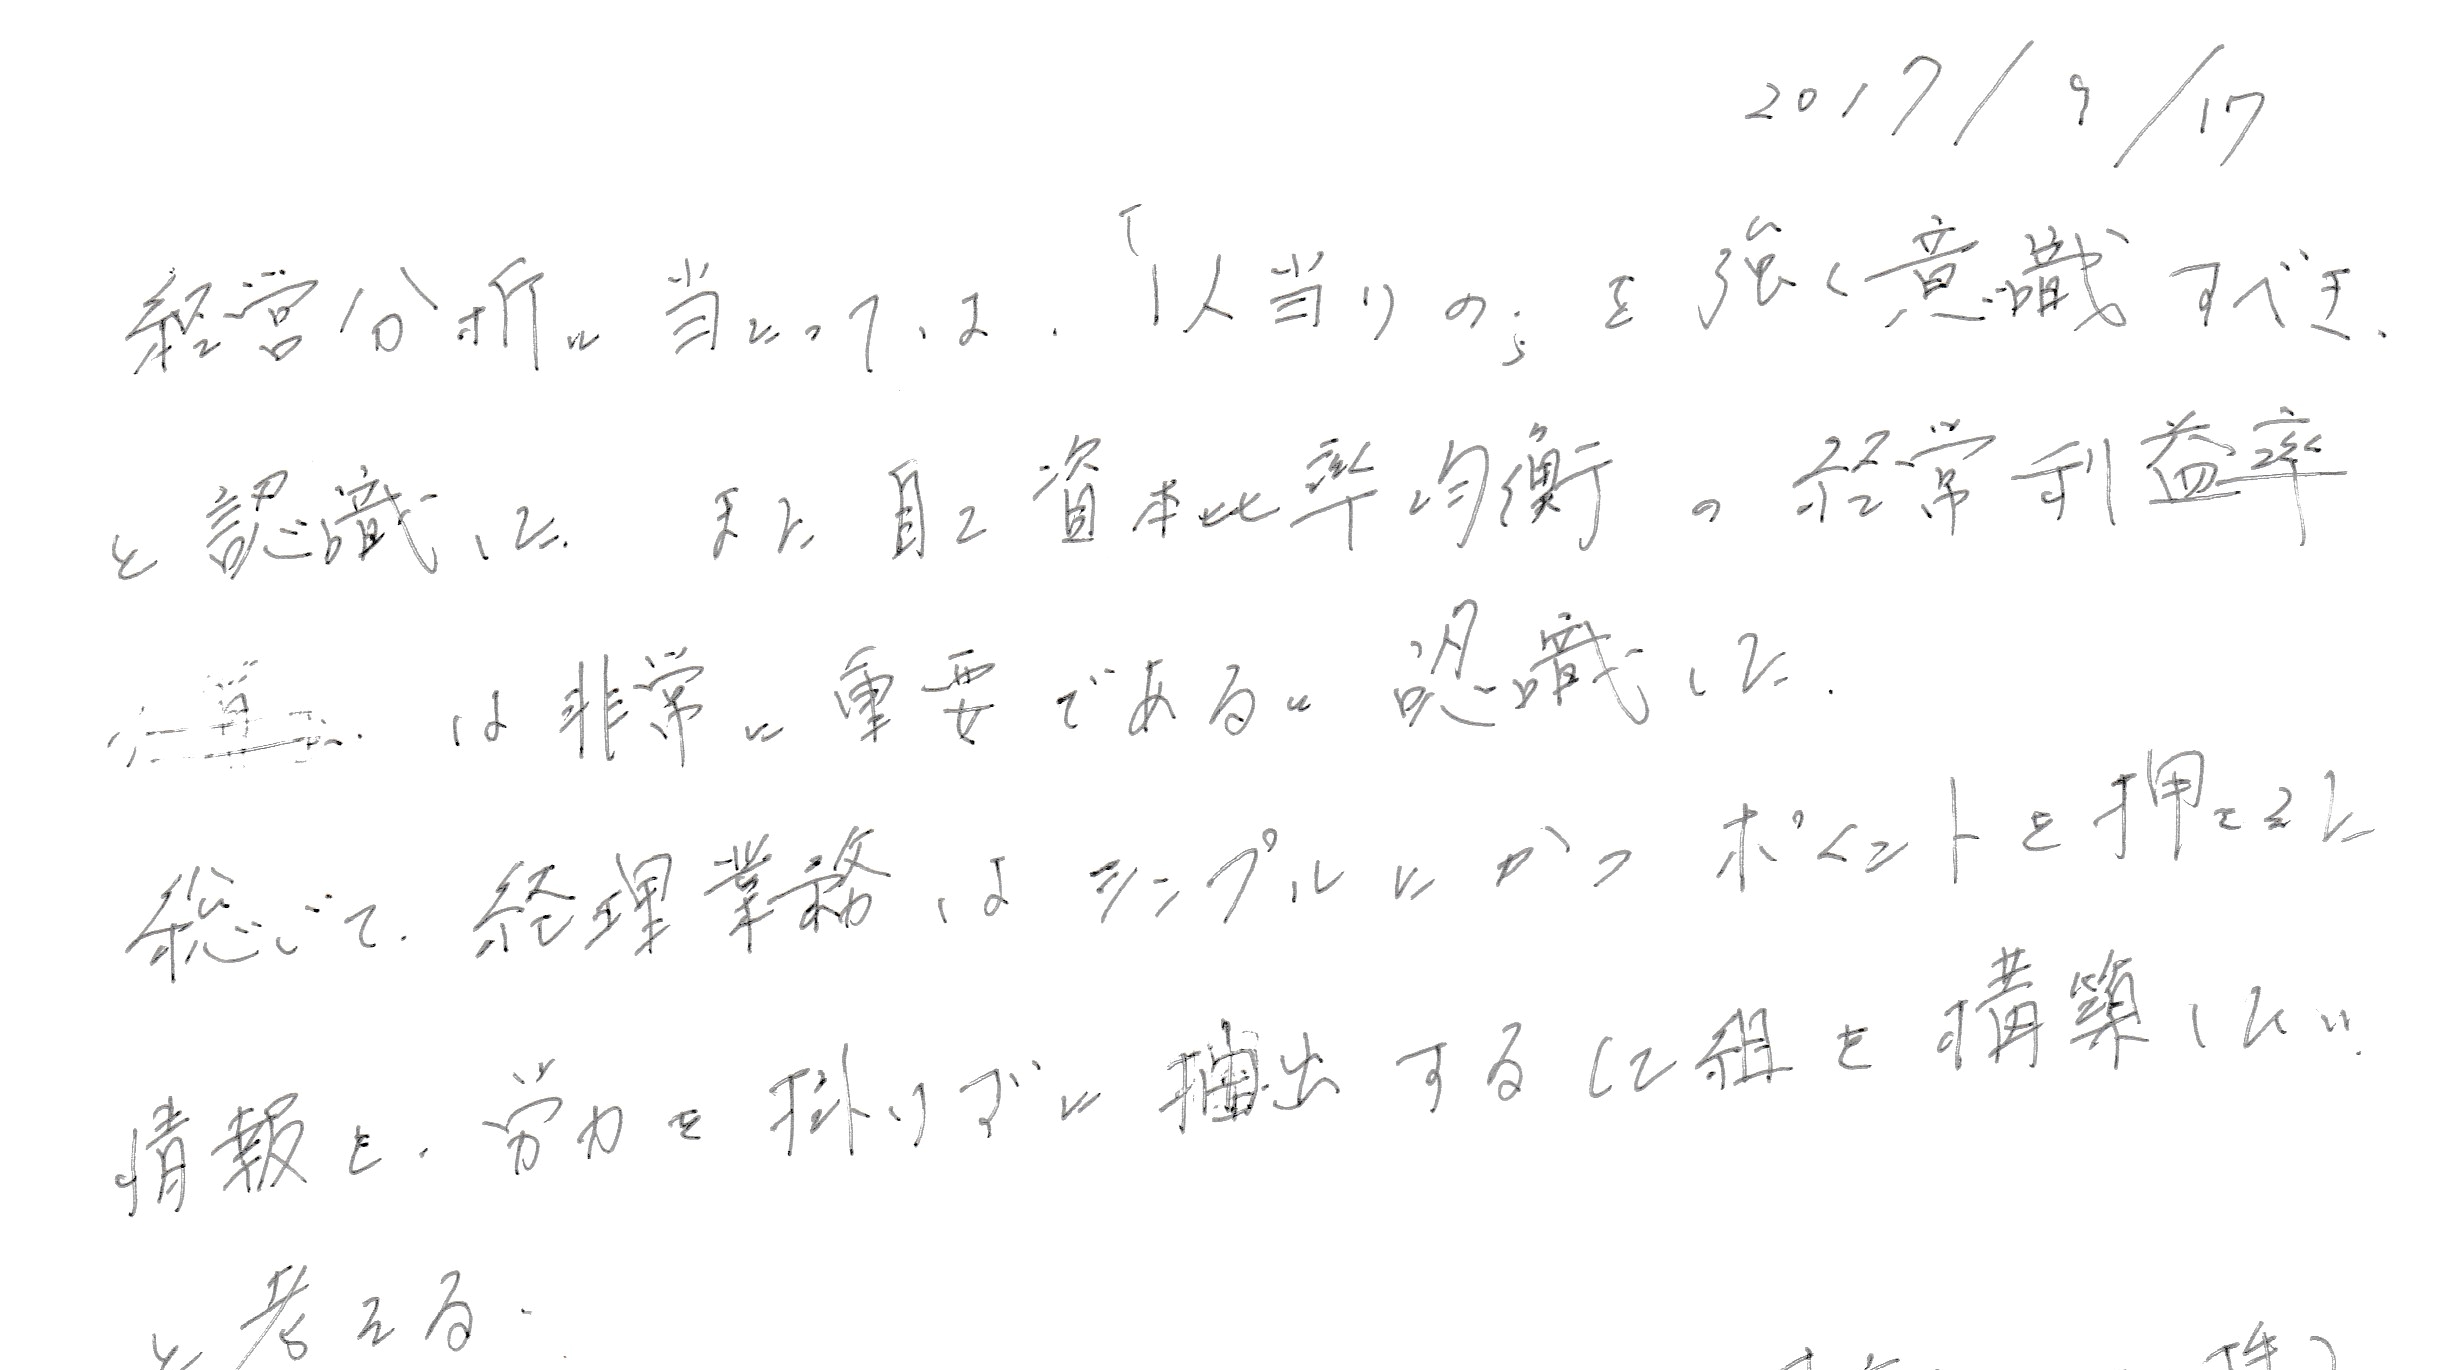 2017/9/17
経営分析に当たっては、「1人当りの」を強く意識すべき、
と認識した。また自己資本比率均衡の経常利益率
は非常に重要であると認識した。
総じて、経理業務はシンプルにかつポイントを押さえた
情報を、労力を掛けずに抽出する仕組を構築したい
と考える。